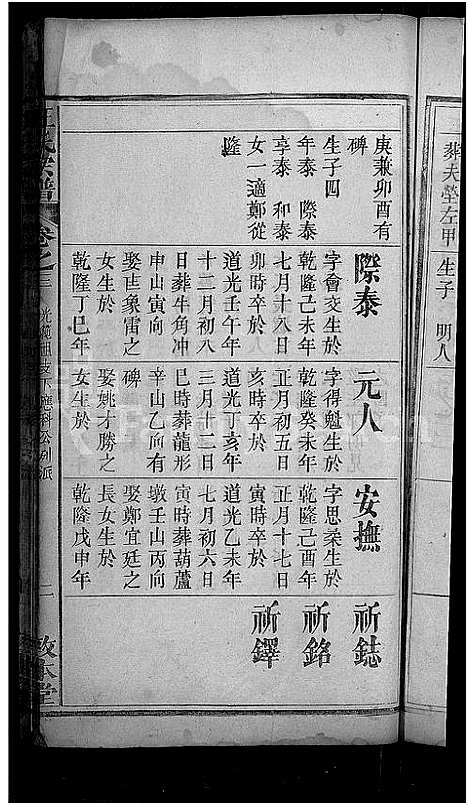 葬夫塋左甲
生子　明人
庚兼卯酉有
碑
生子四
年泰　際泰
享泰　和泰
女一適鄭從
隆
際泰
字會交生於
乾隆己未年
七月十八日
卯時卒於
道光壬午年
十二月初八
日葬牛角冲
申山寅向
娶世象雷之
女生於
乾隆丁巳年
元人
字得魁生於
乾隆癸未年
正月初五日
亥時卒於
道光丁亥年
三月十二日
巳時葬龍形
辛山乙向有
碑
娶姚才勝之
女生於
安撫
字思柔生於
乾隆己酉年
正月十七日
寅時卒於
道光乙未年
七月初六日
寅時葬葫蘆
墩壬山丙向
娶鄭宜廷之
長女生於
乾隆戊申年
祈鋕
祈銘
祈鐸
氏宗譜
卷之三
二
敦本堂